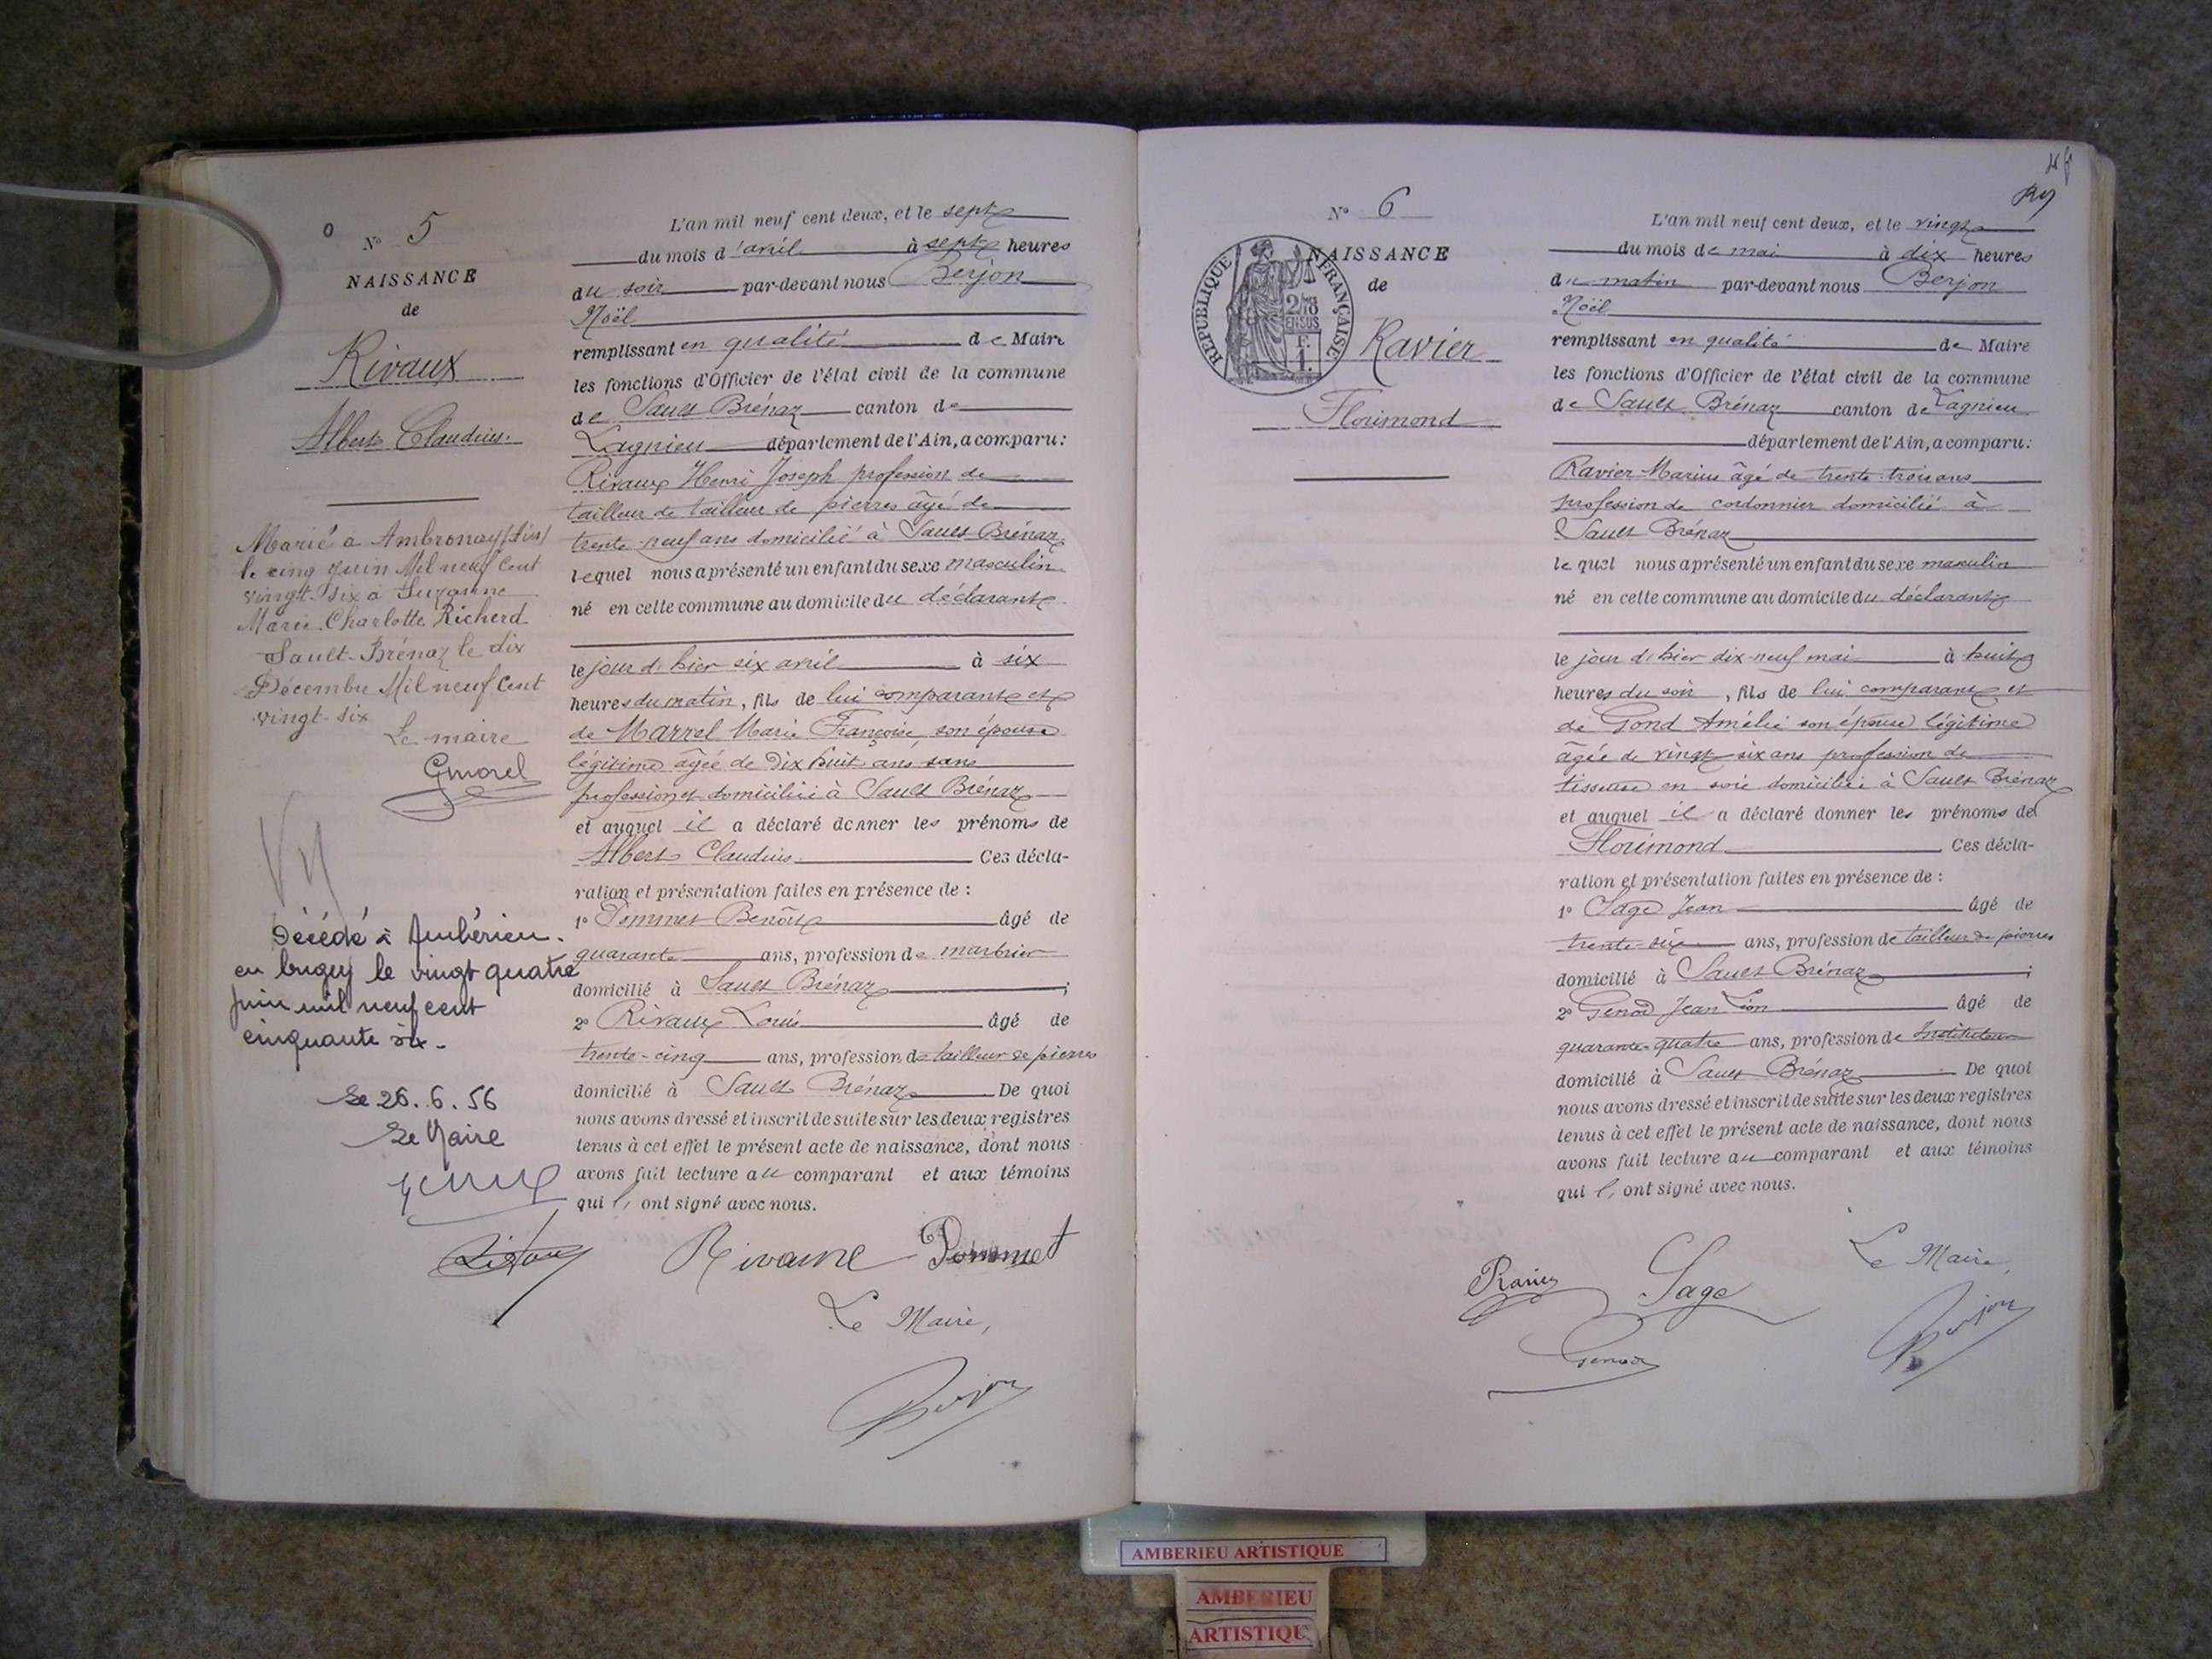 N° 5
NAISSANCE
de
Rivaux
Albert Claudius.
Marié à Ambronay (Ain)
le cinq Juin Mil neuf Cent
vingt-six à Suzanne
Marie Charlotte Richerd
Sault-Brénaz le dix
Décembre Mil neuf Cent
vingt-six
Le maire
Gmorel
Décédé à Ambérieu
en bugey le vingt quatre
juin mil neuf cent
cinquante six.
Le 26.6.56
Le Maire
L'an mil neuf cent deux, et le sept
du mois d'avril à sept heures
du soir par-devant nous Berjon
Noël
remplissant en qualité de Maire
les fonctions d'Officier de l'état civil de la commune
de Sault Brénaz canton de
Lagnieu département de l'Ain, a comparu:
Rivaux Henri Joseph profession de
tailleur de tailleur de pierres âgé de
trente-neuf ans domicilié à Sault Brénaz
lequel nous a présenté un enfant du sexe masculin
né en cette commune au domicile du déclarant
le jour d'hier six avril à six
heures du matin, fils de lui comparant et
de Marrel Marie Françoise, son épouse
légitime âgée de Dix huit ans, sans
profession et domiciliée à Sault Brénaz
et auquel il a déclaré donner les prénoms de
Albert Claudius Ces décla-
ration et présentation faites en présence de :
1° Pommet Benoît âgé de
quarante ans, profession de marbrier
domicilié à Sault Brénaz ;
2° Rivaux Louis âgé de
trente-cinq ans, profession de tailleur de pierres
domicilié à Sault Brénaz De quoi
nous avons dressé et inscrit de suite sur les deux registres
tenus à cet effet le présent acte de naissance, dont nous
avons fait lecture au comparant et aux témoins
qui l' ont signé avec nous.
Rivaux Pommet
Le Maire,
Berjon
N° 6
NAISSANCE
de
RÉPUBLIQUE FRANÇAISE
2/10
EN SUS
F.
1.
Ravier
Florimond
L'an mil neuf cent deux, et le vingt
du mois de mai à dix heures
du matin par-devant nous Berjon
Noël
remplissant en qualité de Maire
les fonctions d'Officier de l'état civil de la commune
de Sault Brénaz canton de Lagnieu
département de l'Ain, a comparu:
Ravier Marius âgé de trente-trois ans
profession de cordonnier domicilié à
Sault Brénaz
lequel nous a présenté un enfant du sexe masculin
né en cette commune au domicile du déclarant
le jour d'hier dix-neuf mai à huit
heures du soir, fils de lui comparant et
de Gond Amélie son épouse légitime
âgée de vingt-six ans profession de
tisseuse en soie domiciliée à Sault Brénaz
et auquel il a déclaré donner les prénoms de
Florimond Ces décla-
ration et présentation faites en présence de :
1° Sage Jean âgé de
trente-six ans, profession de tailleur de pierres
domicilié à Sault Brénaz ;
2° Genod Jean Léon âgé de
quarante-quatre ans, profession de Instituteur
domicilié à Sault Brénaz De quoi
nous avons dressé et inscrit de suite sur les deux registres
tenus à cet effet le présent acte de naissance, dont nous
avons fait lecture au comparant et aux témoins
qui l' ont signé avec nous.
Le Maire,
Ravier Sage
Genod Berjon
AMBERIEU ARTISTIQUE
AMBERIEU
ARTISTIQU